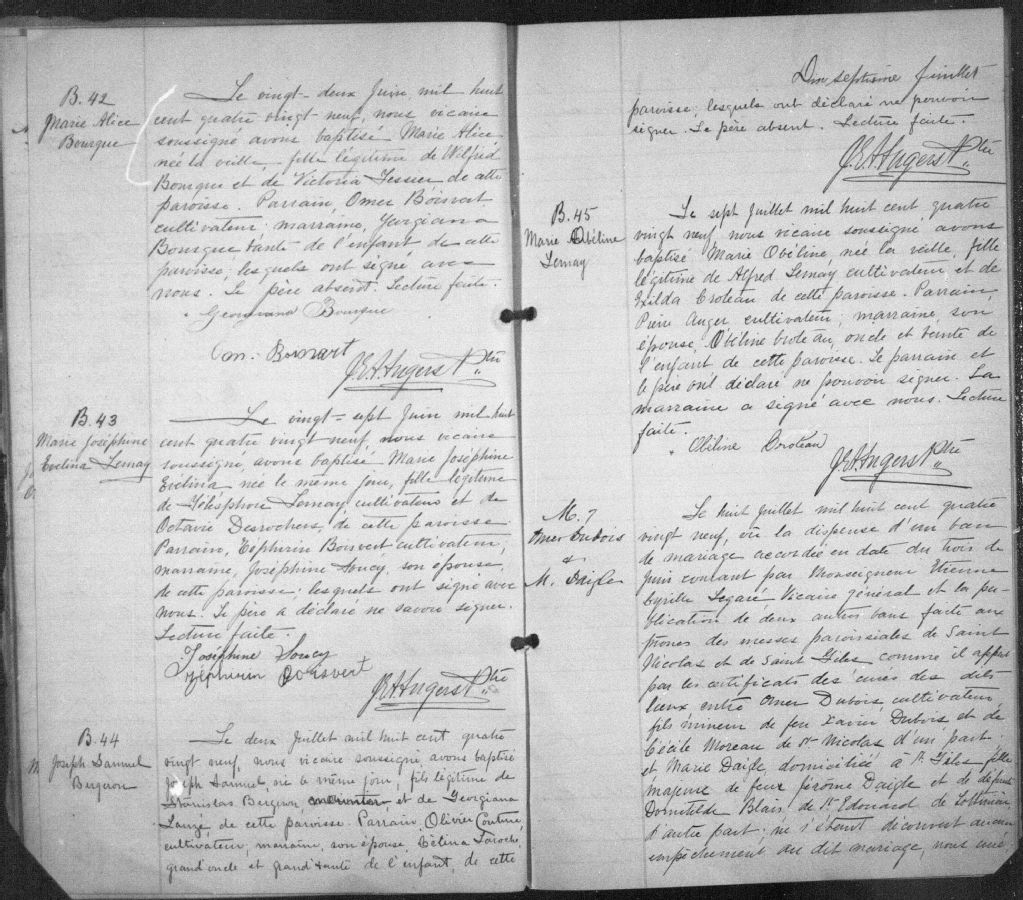 B. 42
Marie Alice
Bourque
Le vingt-deux Juin mil huit
cent quatre vingt neuf, nous vicaire
soussigné avons baptisé Marie Alice
née la veille, fille légitime de Wilfrid
Bourque et de Victoria Tessier de cette
paroisse. Parrain, Omer Boisvert
cultivateur; marraine, Georgiana
Bourque tante de l'enfant de cette
paroisse; lesquels ont signé avec
nous. Le père absent. Lecture faite.
Georgiana Bourque
Om. Boisvert
Ptre
B. 43
Marie Joséphine
Evelina Lemay
Le vingt-sept Juin mil huit
cent quatre vingt neuf, nous vicaire
soussigné, avons baptisé Marie Joséphine
Evelina née le même jour, fille légitime
de Télésphore Lemay cultivateur et de
Octavie Desrochers, de cette paroisse.
Parrain, Zéphirin Boisvert cultivateur;
marraine, Joséphine Houcy, son épouse
de cette paroisse; lesquels ont signé avec
nous. Le père a déclaré ne savoir signer.
Lecture faite.
Joséphine Houcy
Zéphirin Boisvert
Ptre
B. 44
Joseph Samuel
Bergeron
Le deux Juillet mil huit cent quatre
vingt neuf, nous vicaire soussigné, avons baptisé
Joseph Samuel, né le même jour, fils légitime de
Stanislas Bergeron et de Georgiana
de cette paroisse. Parrain, Olivier Couture,
cultivateur, marraine, son épouse, Célina Laroche,
grand oncle et grand tante de l'enfant, de cette
Dix septième feuillet
paroisse; lesquels ont déclaré ne pouvoir
signer. Le père absent. Lecture faite.
Ptre
B. 45
Marie Obéline
Lemay
Le sept Juillet mil huit cent quatre
vingt neuf nous vicaire soussigné avons
baptisé Marie Obéline, née la veille, fille
légitime de Alfred Lemay cultivateur et de
Exilda Croteau de cette paroisse. Parrain,
Pierre Auger cultivateur; marraine, son
épouse Obéline Croteau, oncle et tante de
l'enfant de cette paroisse. Le parrain et
le père ont déclaré ne pouvoir signer. La
marraine a signé avec nous. Lecture
faite.
Obéline Croteau
Ptre
M. 7
Omer Dubois
&
M. Daigle
Le huit Juillet mil huit cent quatre
vingt neuf, vu la dispense d'un ban
de mariage accordée en date du trois de
Juin courant par Monseigneur
Cyrille Legaré Vicaire général et la pu-
blication de deux autres bans faite aux
prones des messes paroissiales de Saint
Nicolas et de Saint Giles comme il appert
par les certificats des curés des dits
lieux entre Omer Dubois cultivateur,
fils mineur de feu Xavier Dubois et de
Cécile Moreau de St Nicolas d'un part
et Marie Daigle domiciliée à St Giles fille
majeure de feux Jérôme Daigle et de défunte
Domitilde Blais, de St Edouard de Lotbinière
d'autre part; ne s'étant découvert aucun
empêchement au dit mariage, nous curé